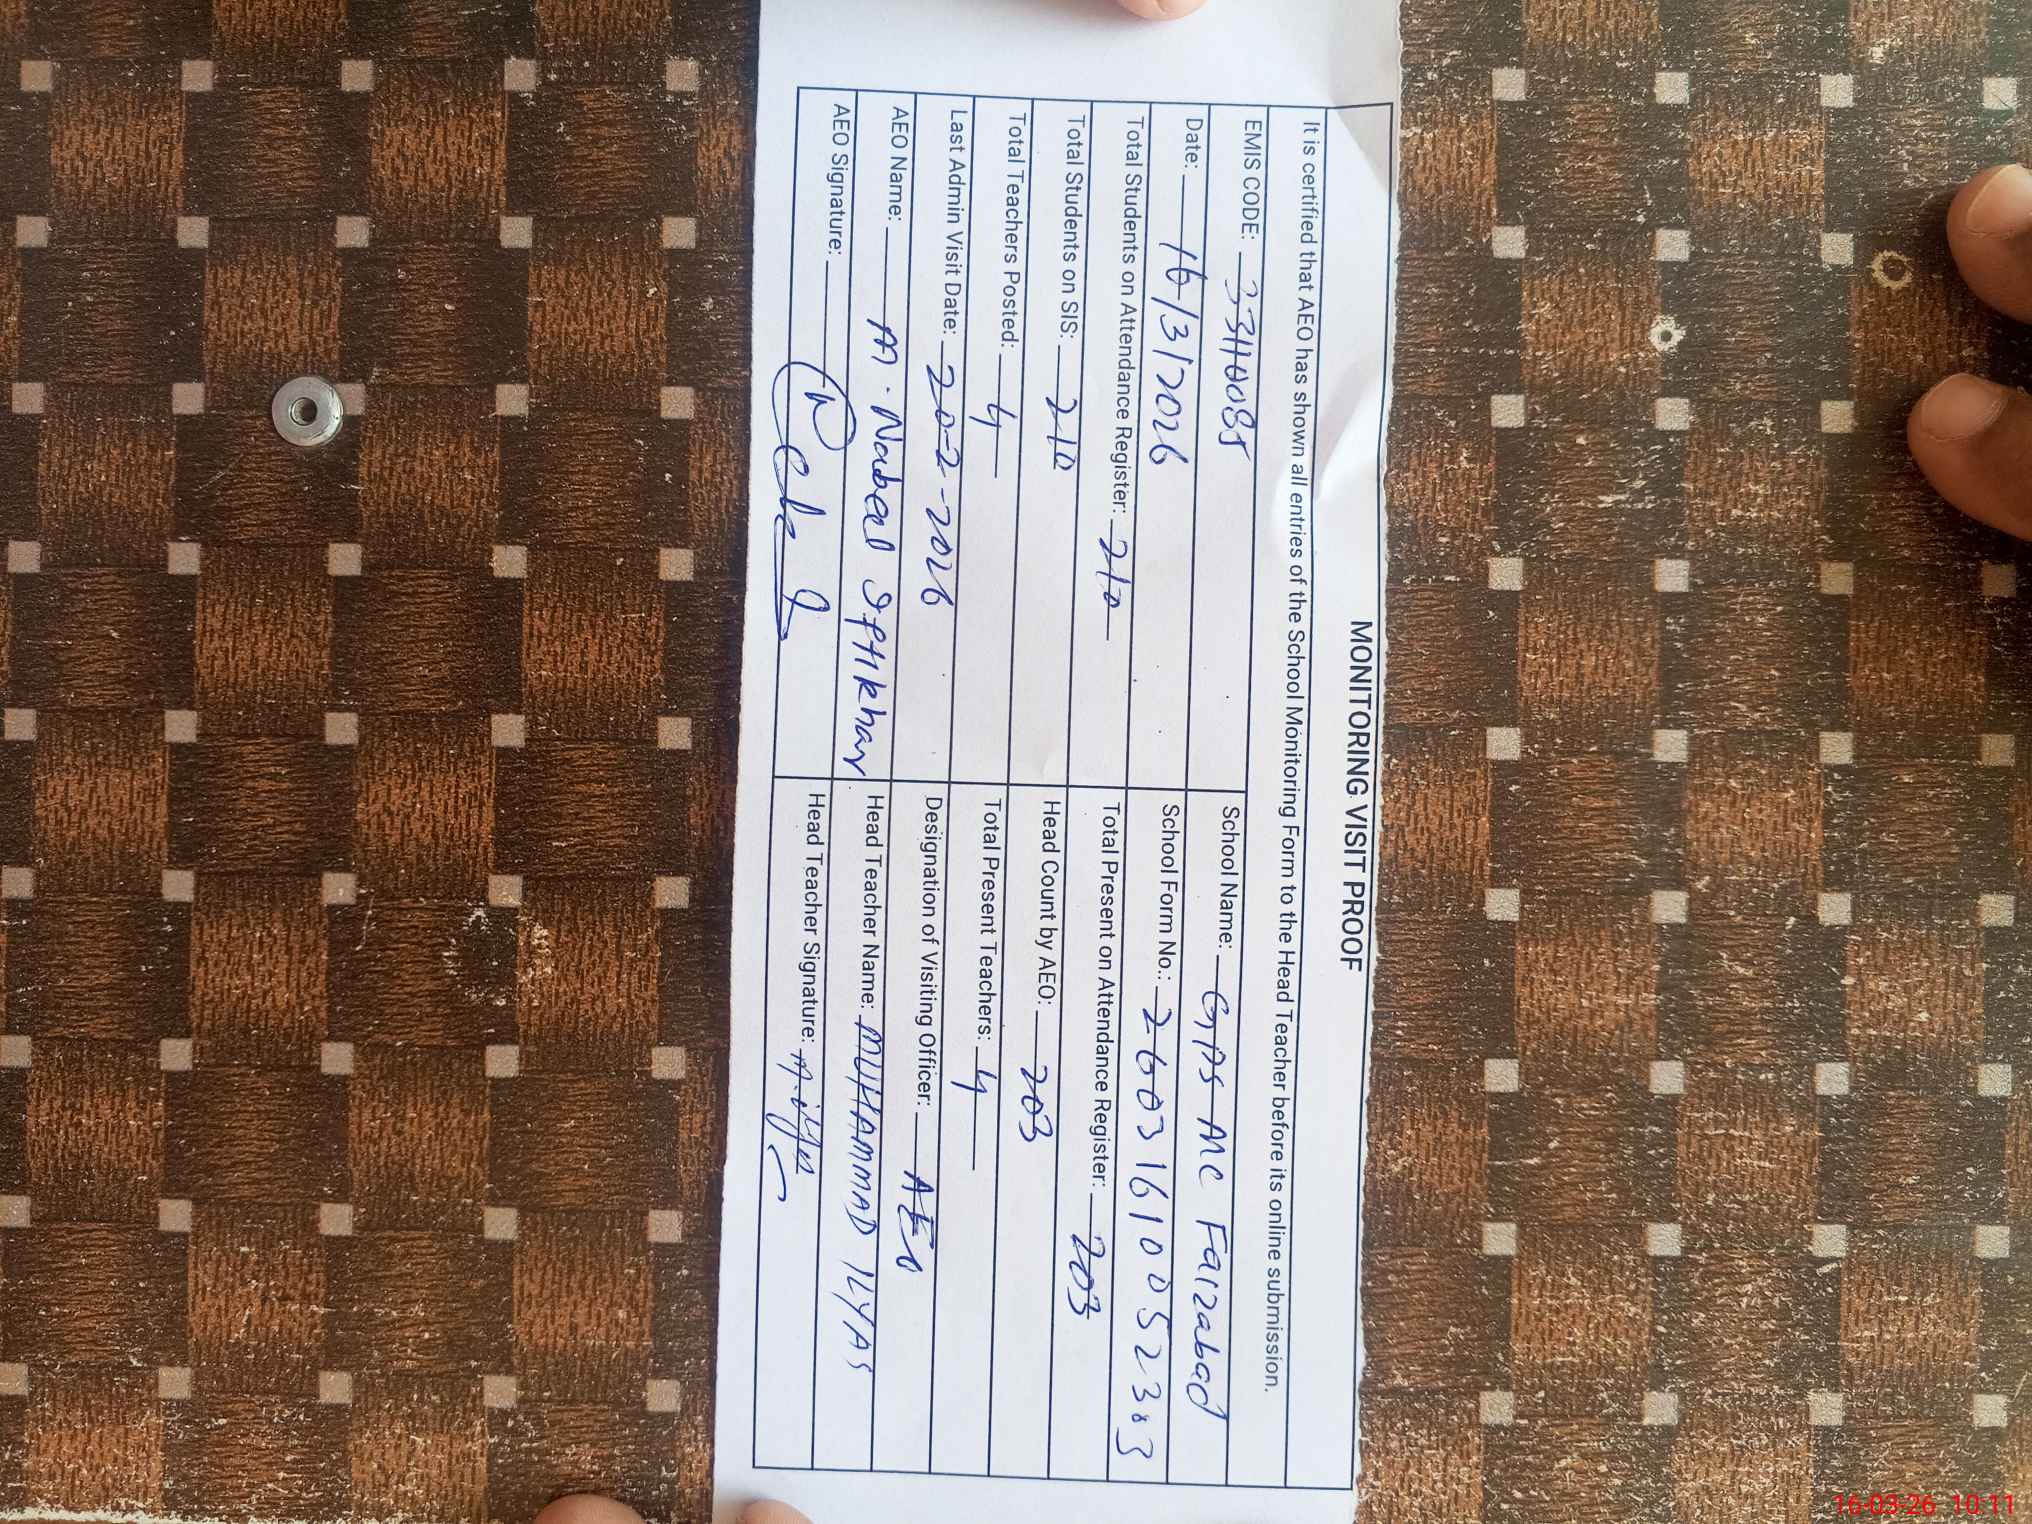 MONITORING VISIT PROOF
It is certified that AEO has shown all entries of the School Monitoring Form to the Head Teacher before its online submission.
EMIS CODE: 33110085 School Name: GPS MC Faizabad
Date: 16/3/2026 School Form No.: 26031610052303
Total Students on Attendance Register: 210 Total Present on Attendance Register: 203
Total Students on SIS: 210 Head Count by AEO: 203
Total Teachers Posted: 4 Total Present Teachers: 4
Last Admin Visit Date: 20-2-2026 Designation of Visiting Officer: AEO
AEO Name: M. Nabeel Iftikhar Head Teacher Name: MUHAMMAD ILYAS
AEO Signature: Head Teacher Signature: M. Ilyas
16-03-26 10:11